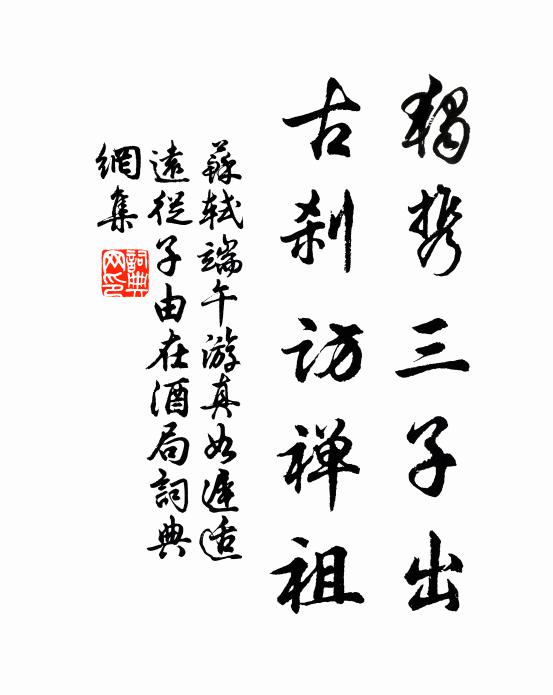 獨携三子出
古刹訪禅祖
蘇軾端午游真如遲适
遠從子由在酒局詞典
網集
詞典网印